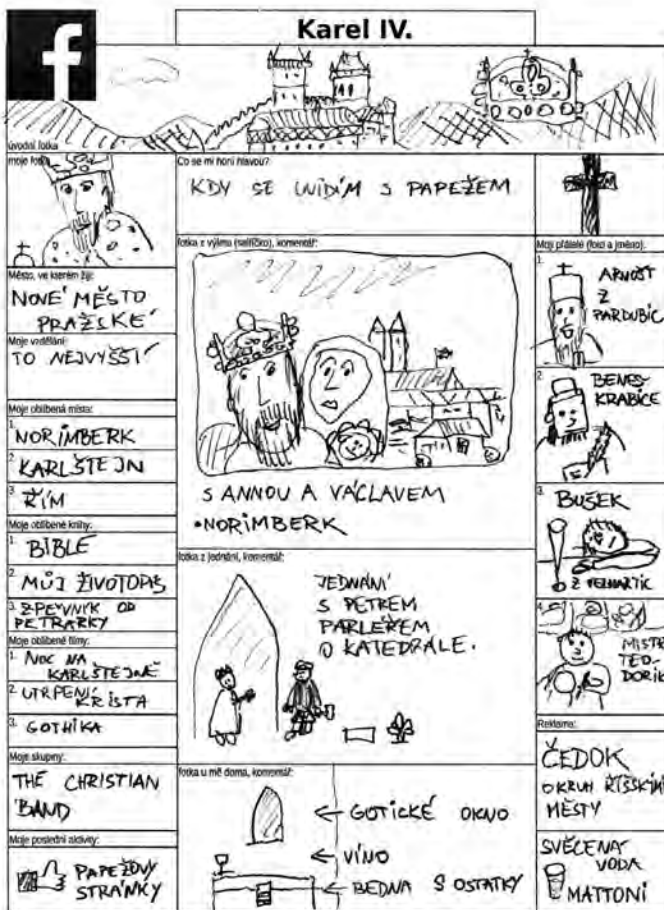 f
Karel IV.
úvodní fotka
moje fotka
Město, ve kterém žiji:
NOVÉ MĚSTO
PRAŽSKÉ
Moje vzdělání:
TO NEJVYŠŠÍ
Moje oblíbená místa:
1. NORIMBERK
2. KARLŠTEJN
3. ŘÍM
Moje oblíbené knihy:
1. BIBLE
2. MŮJ ŽIVOTOPIS
3. ZPEVNÍK OD
PETRARKY
Moje oblíbené filmy:
1. NOC NA
KARLŠTEJNĚ
2. UTRPENÍ
KRISTA
3. GOTHIKA
Moje skupiny:
THE CHRISTIAN
BAND
Moje poslední aktivity:
PAPEŽOVY
STRÁNKY
Co se mi honí hlavou?
KDY SE UVIDÍM S PAPEŽEM
fotka z výletu (selfíčko), komentář:
S ANNOU A VÁCLAVEM
•NORIMBERK
fotka z jednání, komentář:
JEDNÁNÍ
S PETREM
PARLÉŘEM
O KATEDRÁLE.
fotka u mě doma, komentář:
GOTICKÉ OKNO
VÍNO
BEDNA S OSTATKY
Moji přátelé (foto a jméno):
1. ARNOŠT
Z
PARDUBIC
2. BENEŠ
KRABICE
3. BUŠEK
Z
4. MISTR
TEO-
DORIK
Reklama:
ČEDOK
OKRUH ŘÍŠSKÝMI
MĚSTY
SVĚCENÁ
VODA
MATTONI